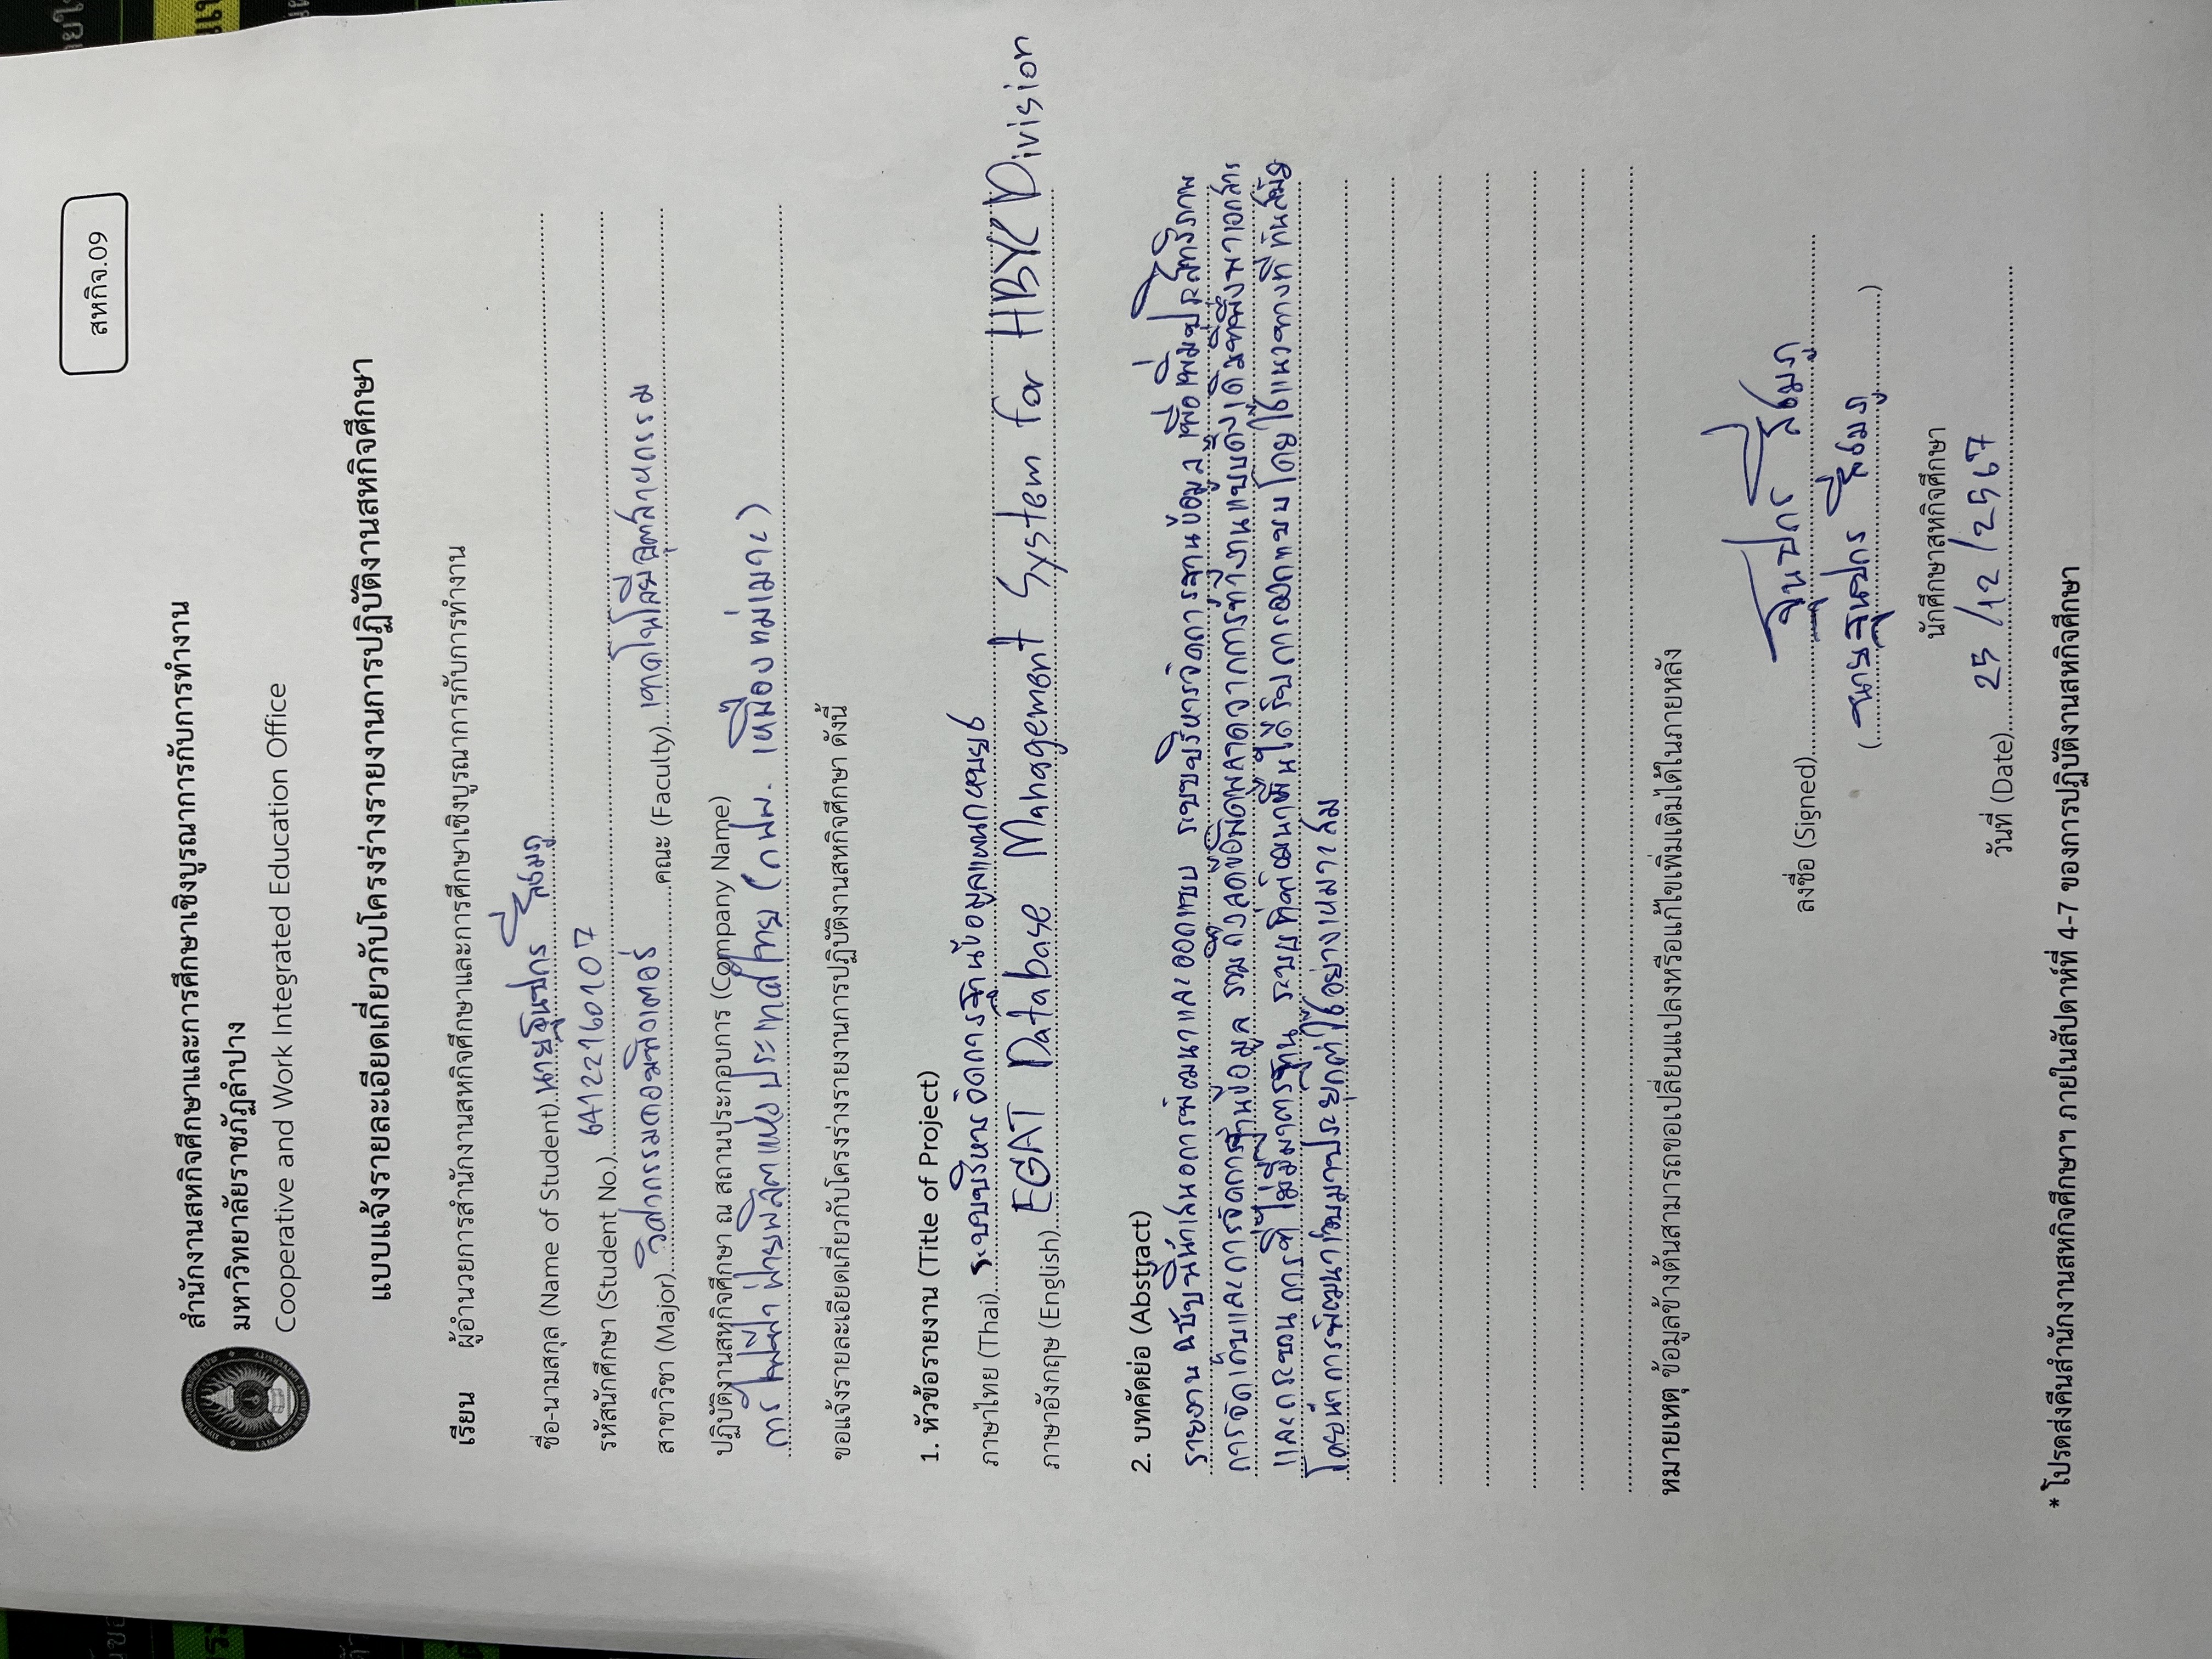 สหกิจ.09
สำนักงานสหกิจศึกษาและการศึกษาเชิงบูรณาการกับการทำงาน
มหาวิทยาลัยราชภัฏลำปาง
Cooperative and Work Integrated Education Office
แบบแจ้งรายละเอียดเกี่ยวกับโครงร่างรายงานการปฏิบัติงานสหกิจศึกษา
เรียน ผู้อำนวยการสำนักงานสหกิจศึกษาและการศึกษาเชิงบูรณาการกับการทำงาน
ชื่อ-นามสกุล (Name of Student) นายฐนปกร สีชมภู
รหัสนักศึกษา (Student No.) 64122160107
สาขาวิชา (Major) วิศวกรรมคอมพิวเตอร์ คณะ (Faculty) เทคโนโลยีอุตสาหกรรม
ปฏิบัติงานสหกิจศึกษา ณ สถานประกอบการ (Company Name)
การไฟฟ้าฝ่ายผลิตแห่งประเทศไทย (กฟผ. เหมืองแม่เมาะ)
ขอแจ้งรายละเอียดเกี่ยวกับโครงร่างรายงานการปฏิบัติงานสหกิจศึกษา ดังนี้
1. หัวข้อรายงาน (Title of Project)
ภาษาไทย (Thai) ระบบบริหารจัดการฐานข้อมูลแผนก
ภาษาอังกฤษ (English) EGAT Database Management System for Division
2. บทคัดย่อ (Abstract)
รายงานฉบับนี้นำเสนอการพัฒนาและออกแบบ ระบบบริหารจัดการฐานข้อมูล เพื่อเพิ่มประสิทธิภาพ
การจัดเก็บและการจัดการฐานข้อมูล รวมถึงลดข้อผิดพลาดจากการทำงานแบบดั้งเดิมที่พึ่งพาเอกสาร
และกระบวนการที่ไม่มีมาตรฐาน ระบบที่พัฒนาขึ้นได้รับการออกแบบโดยใช้แนวทางที่ทันสมัย
โดยนำการพัฒนาเว็บมาประยุกต์ใช้อย่างเหมาะสม
หมายเหตุ ข้อมูลข้างต้นสามารถขอเปลี่ยนแปลงหรือแก้ไขเพิ่มเติมได้ในภายหลัง
ลงชื่อ (Signed) ฐนปกร สีชมภู
(นายฐนปกร สีชมภู)
นักศึกษาสหกิจศึกษา
วันที่ (Date) 25/12/2567
* โปรดส่งคืนสำนักงานสหกิจศึกษาฯ ภายในสัปดาห์ที่ 4-7 ของการปฏิบัติงานสหกิจศึกษา